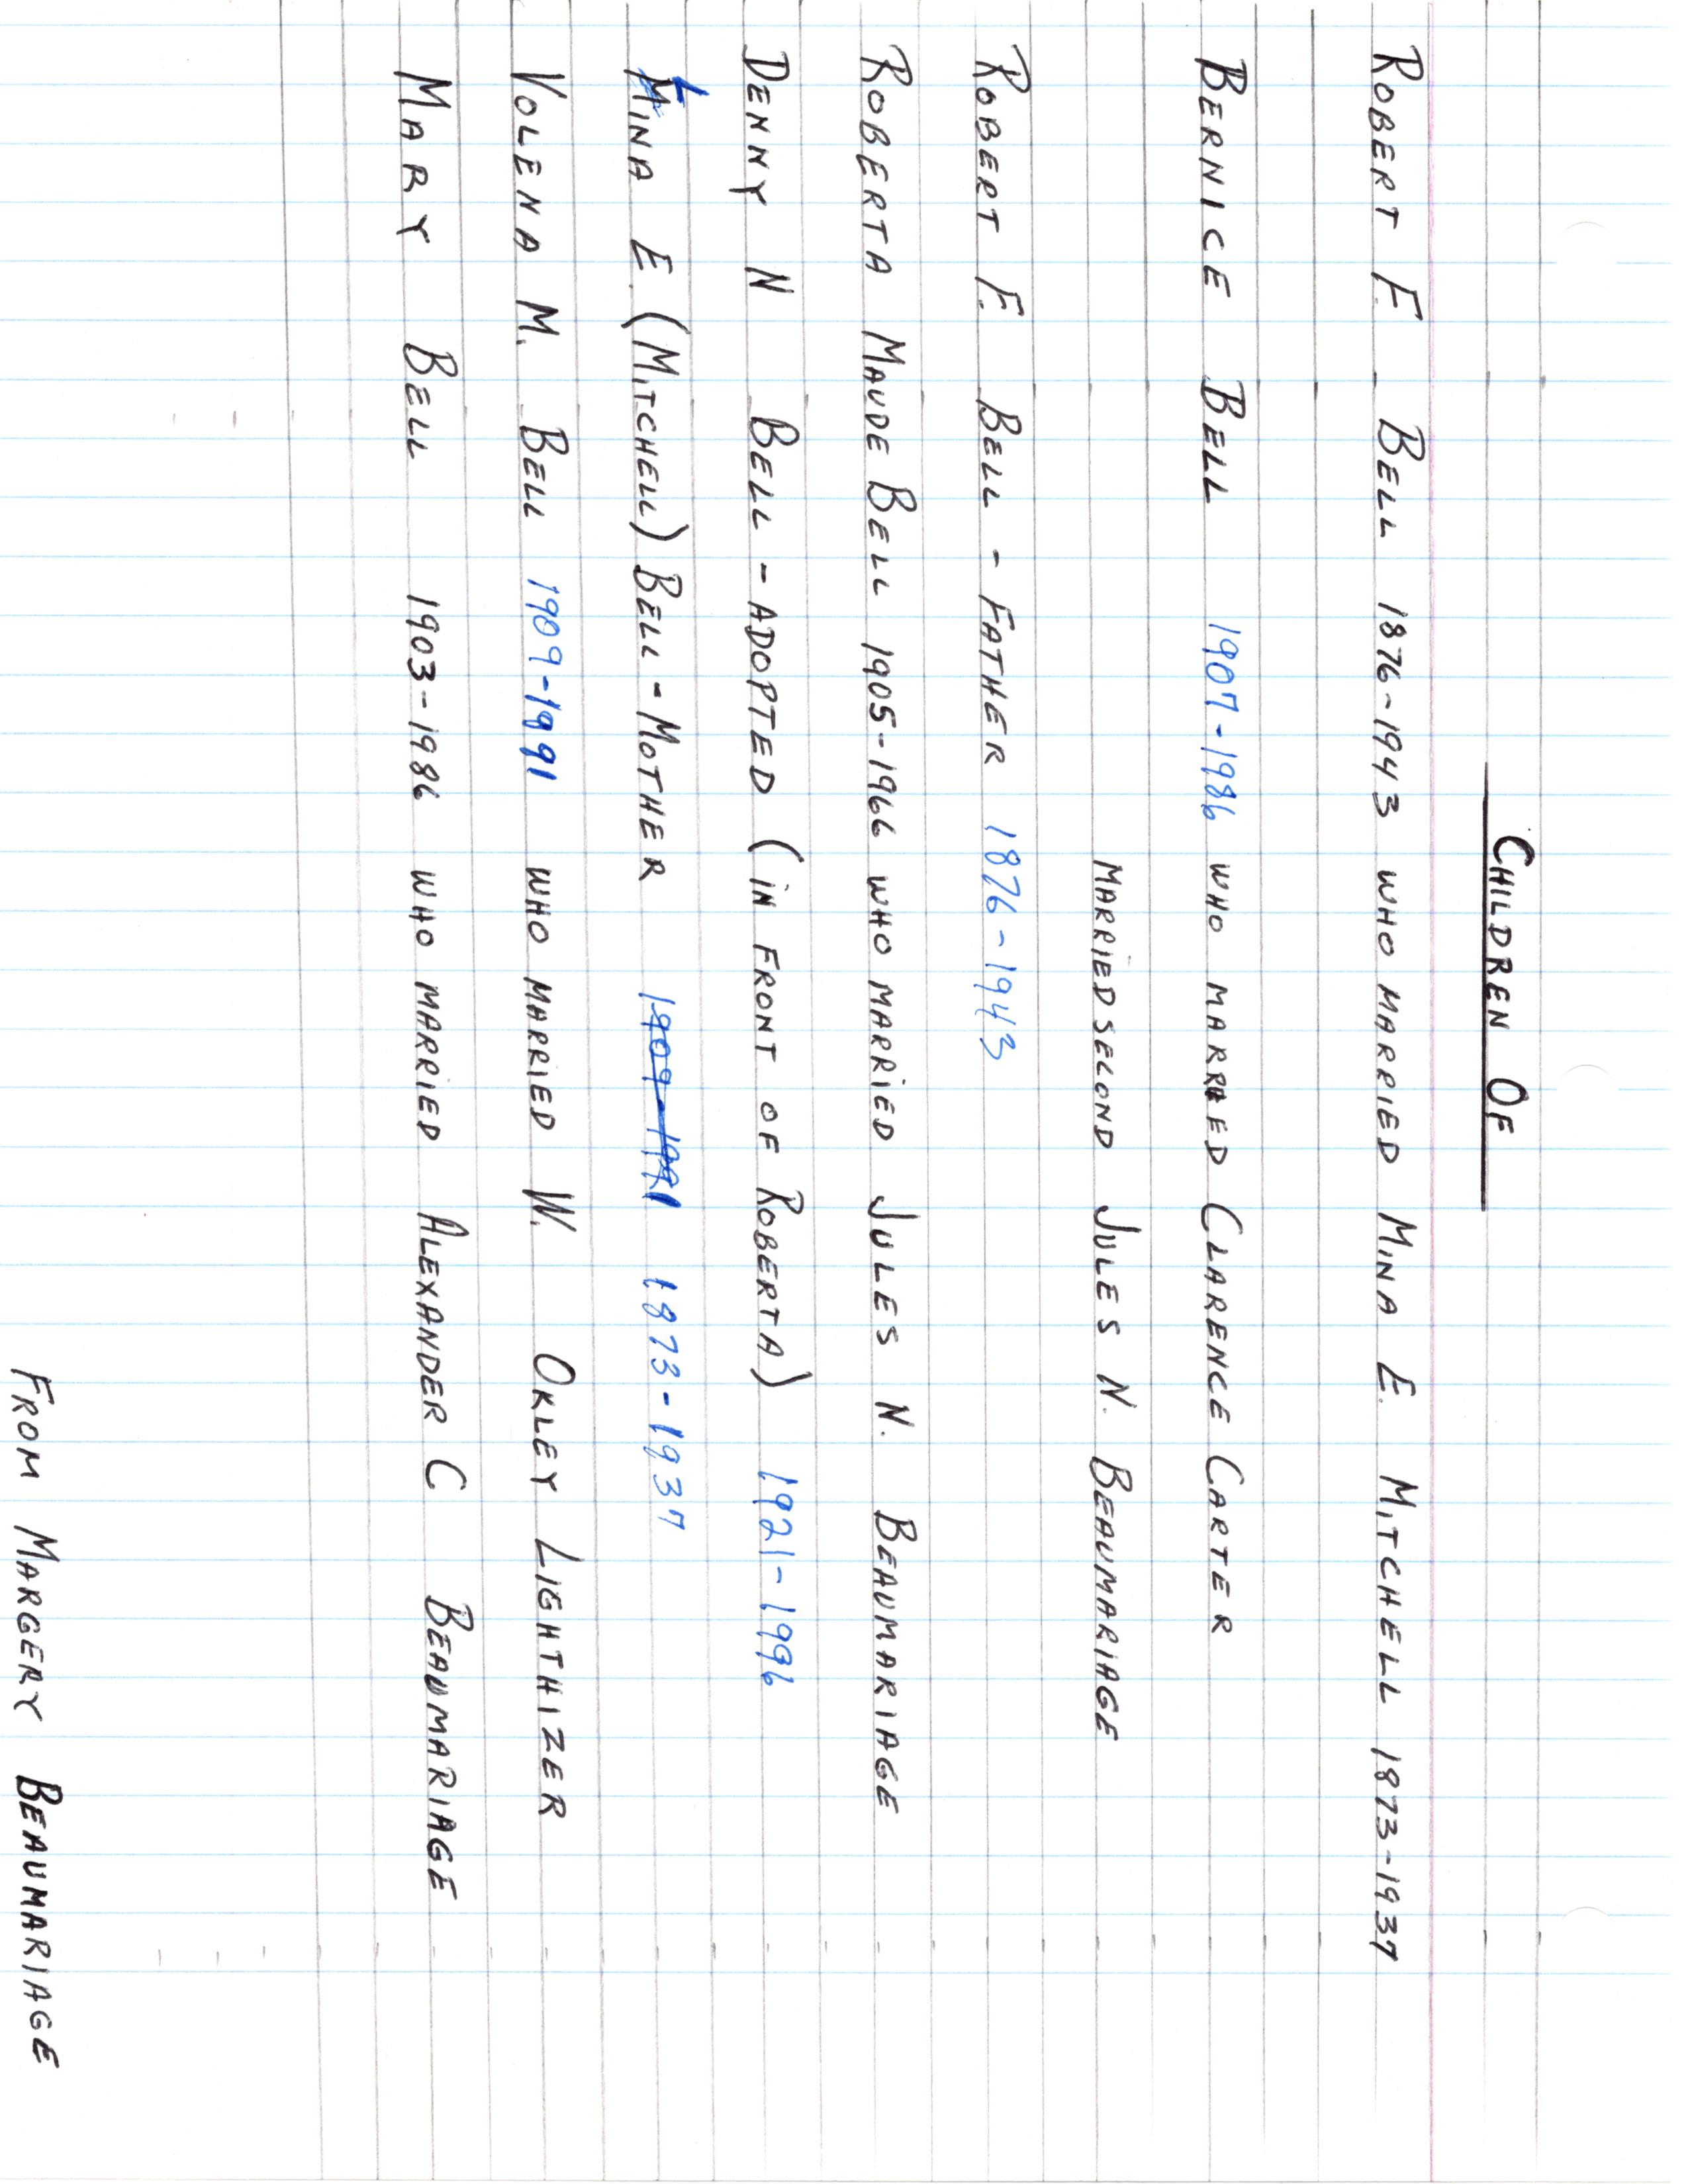 CHILDREN OF
ROBERT F. BELL 1876-1943 WHO MARRIED MINA E. MITCHELL 1873-1937
BERNICE BELL 1907-1986 WHO MARRIED CLARENCE CARTER
MARRIED SECOND JULES N. BEAUMARIAGE
ROBERT F. BELL - FATHER 1876-1943
ROBERTA MAUDE BELL 1905-1966 WHO MARRIED JULES N. BEAUMARIAGE
DENNY N BELL - ADOPTED (IN FRONT OF ROBERTA) 1921-1996
MINA E. (MITCHELL) BELL - MOTHER 1909-1991 1873-1937
VOLENA M. BELL 1909-1991 WHO MARRIED W. OKLEY LIGHTHIZER
MARY BELL 1903-1986 WHO MARRIED ALEXANDER C BEAUMARIAGE
FROM MARGERY BEAUMARIAGE